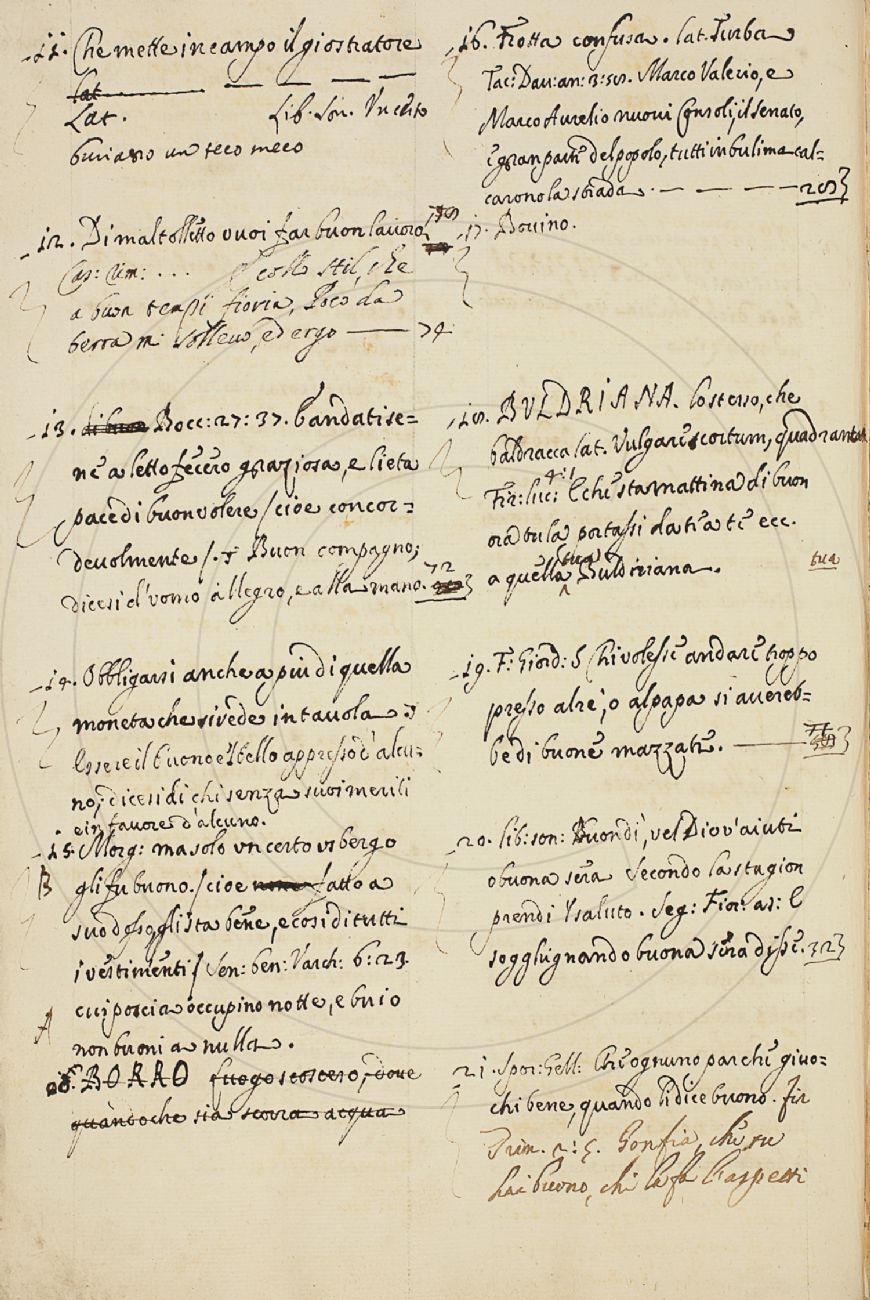 11. Che mette in campo il giostratore
Lat
Lat. Lib. Son. Un certo
buriasso un teco meco
12. Di mal tolletto vuoi far buon lavoro
Cas: rim: ... E collo stil, che
a buon tempi fioria, Poco da
terra mi sollevo, ed ergo — 74
13. Bocc: 27: 37. E andatise=
ne a letto fecero graziosa, e lieta
pace di buon volere / cioè concor=
devolmente /. Buon compagno;
dicesi d'uomo allegro, e alla mano. 72
14. Obbligarsi anche a più di quella
moneta che si vede in tavola
Essere il buono e 'l bello appresso d'alcu=
no; dicesi di chi senza suoi meriti
e in favore d'alcuno.
15. Morg: ma solo un certo usbergo
B gli fu buono. / cioè fatto a
suo dosso gli sta bene, e così di tutti
i vestimenti / Sen: ben: Varch: 6: 23.
cui poscia occupi notte, e buio
A non buoni a nulla.
BORRO fuogo scosceso, dove
quando che sia scorra acqua
16. Frotta confusa. lat. Turba
Tac: Dav: an: 3: 58. Marco Valerio, e
Marco Aurelio nuovi Consoli, il Senato,
e gran parte del popolo, tutti in bulima cal=
carono la strada. — — — 28
17. Bovino.
18. BULDRIANA. lo stesso, che
baldracca lat. Vulgare scortum, quadrantar
Fir: luc: 4: 1 E chi sta mattina di buon
ora tu la portassi da tra te ecc.
a quella tua Buldriana. tua
19. F: Giord: S Chi volesse andare troppo
presso al re, o al papa si avereb=
be di buone mazzate.
20. lib: son: Buondì, vel Dio v'aiuti
o buona sera Secondo la stagion
prendi 'l saluto. Seg: Fior: as: E
sogghignando buona sera disse. 32
21. Spor: Gell: Che ognuno par che giuo=
chi bene, quando li dice buono. fir
Trin. 2: 5. Gonfia, che tu
hai buono, chi la fa l'aspetti